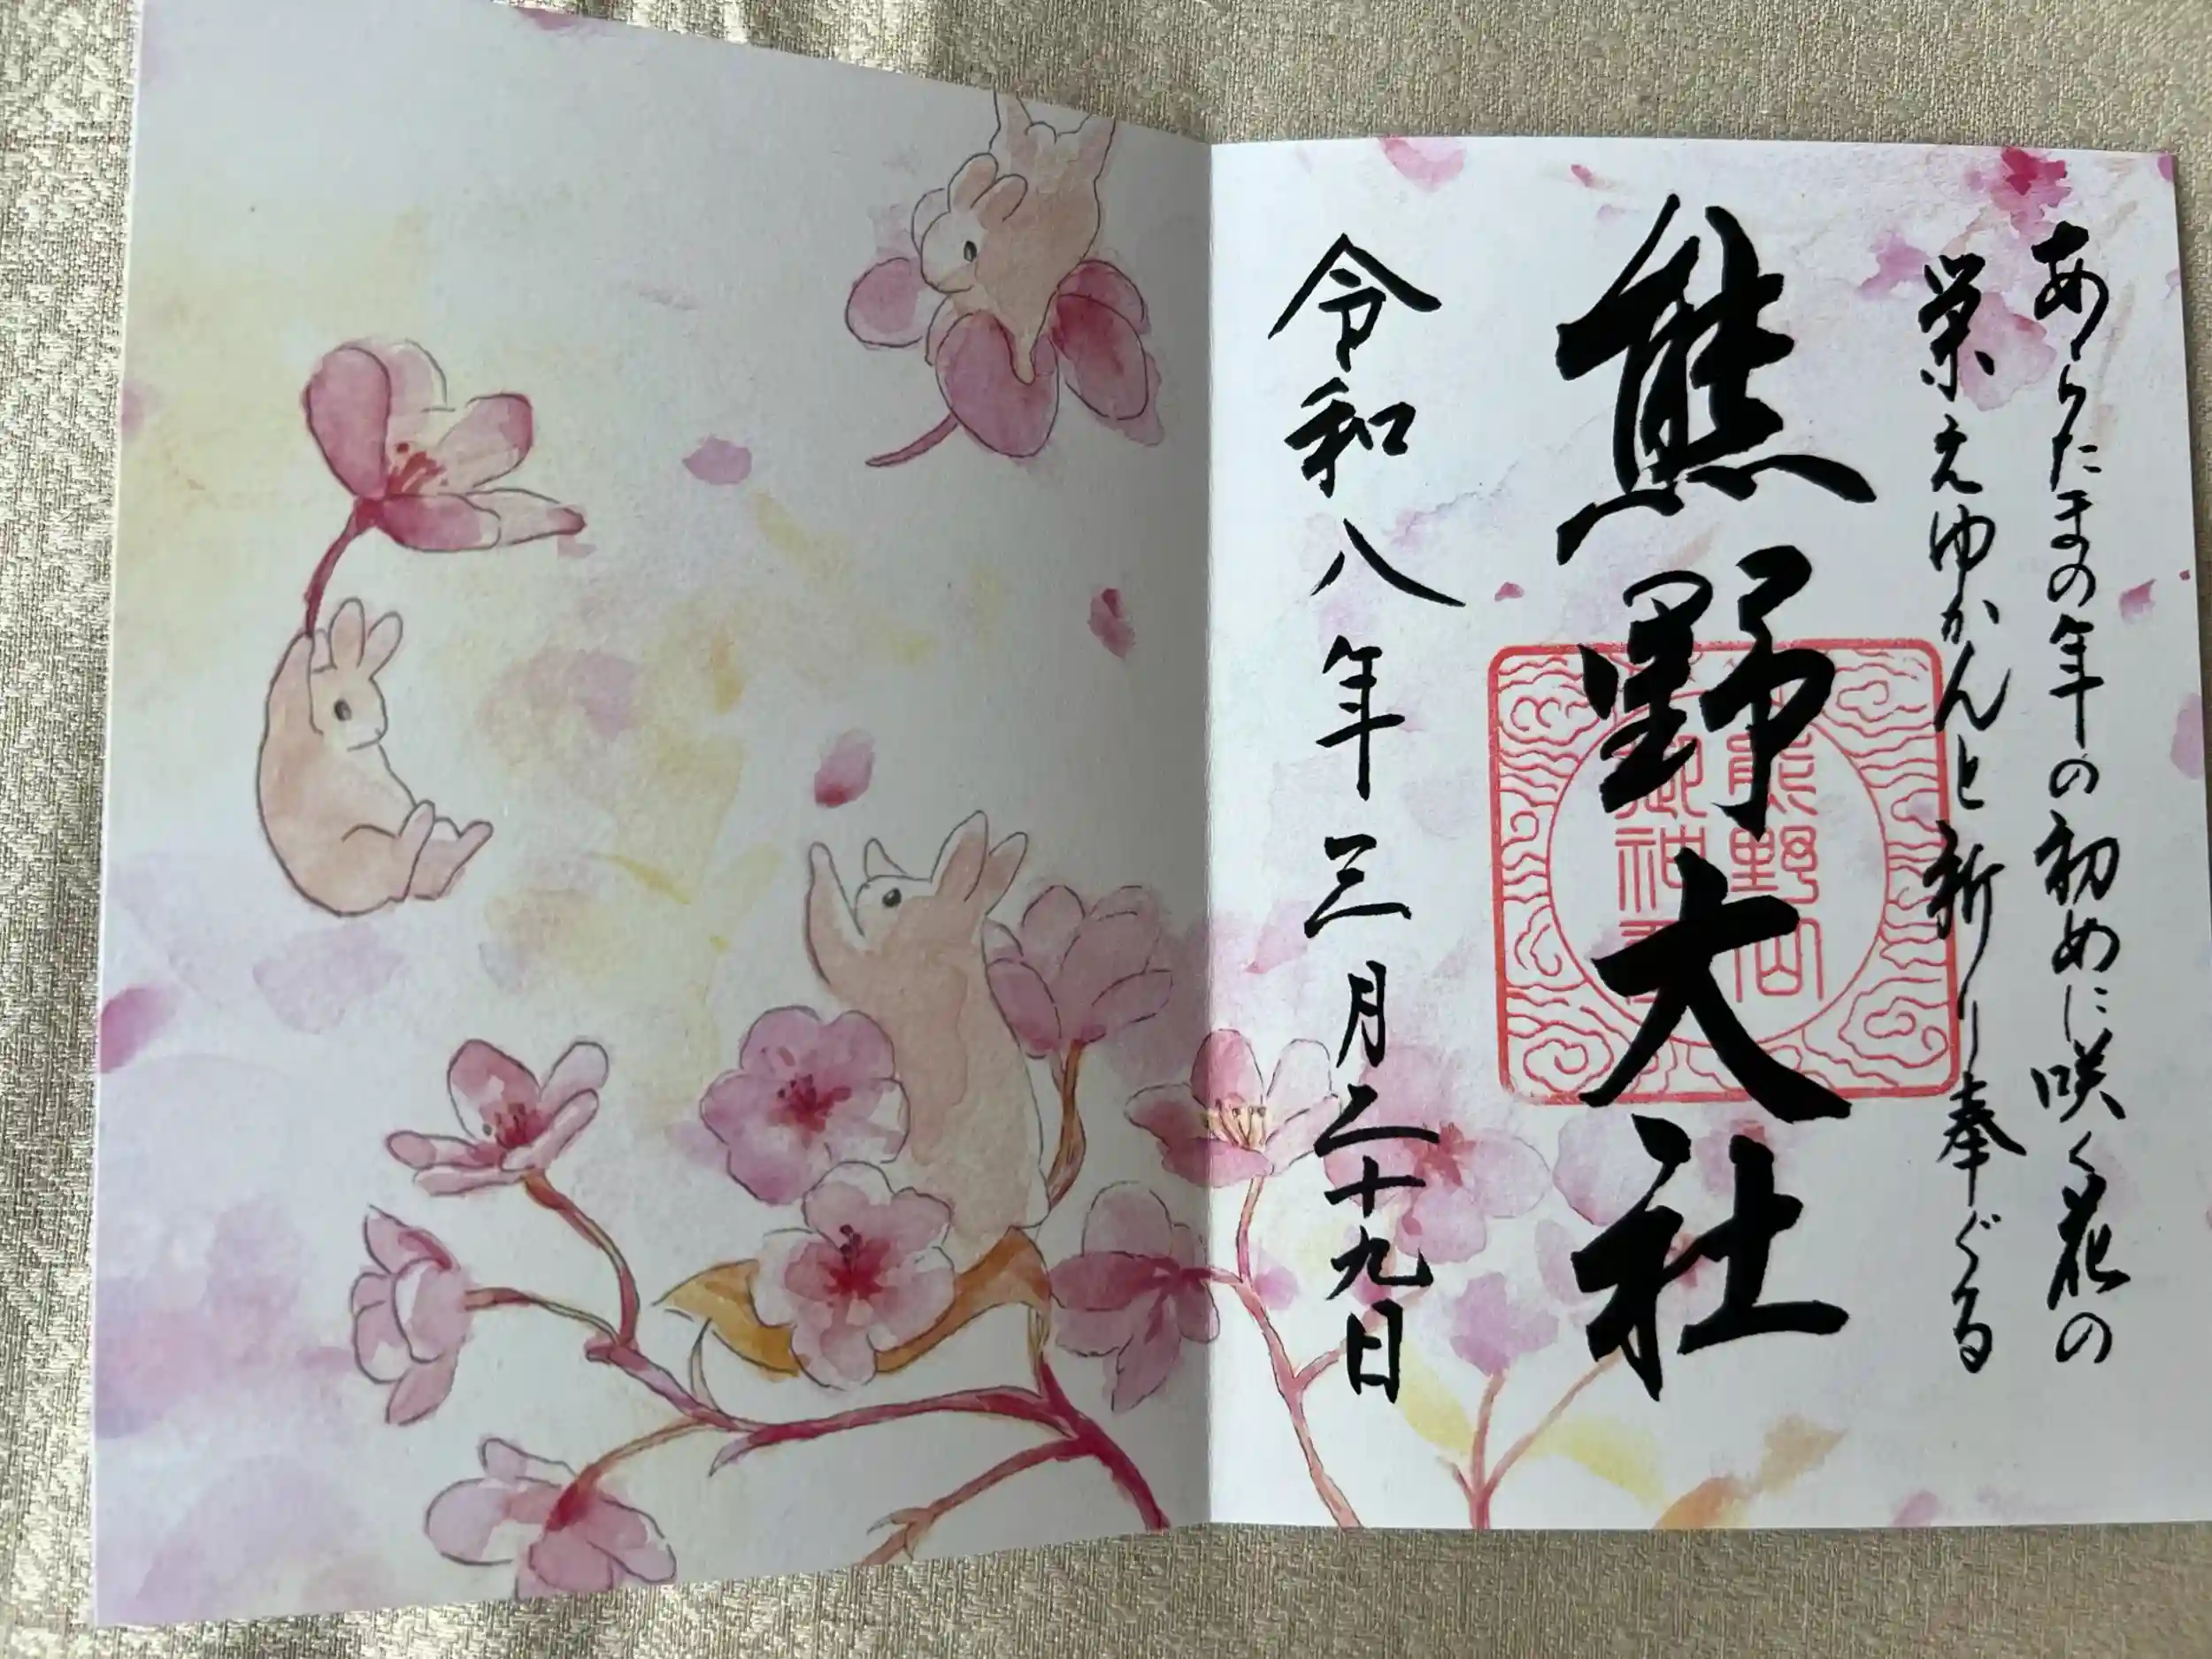 あらたまの年の初めに咲く花の
栄えゆかんと祈り奉ぐる
熊野大社
熊野山
御神
令和八年三月二十九日